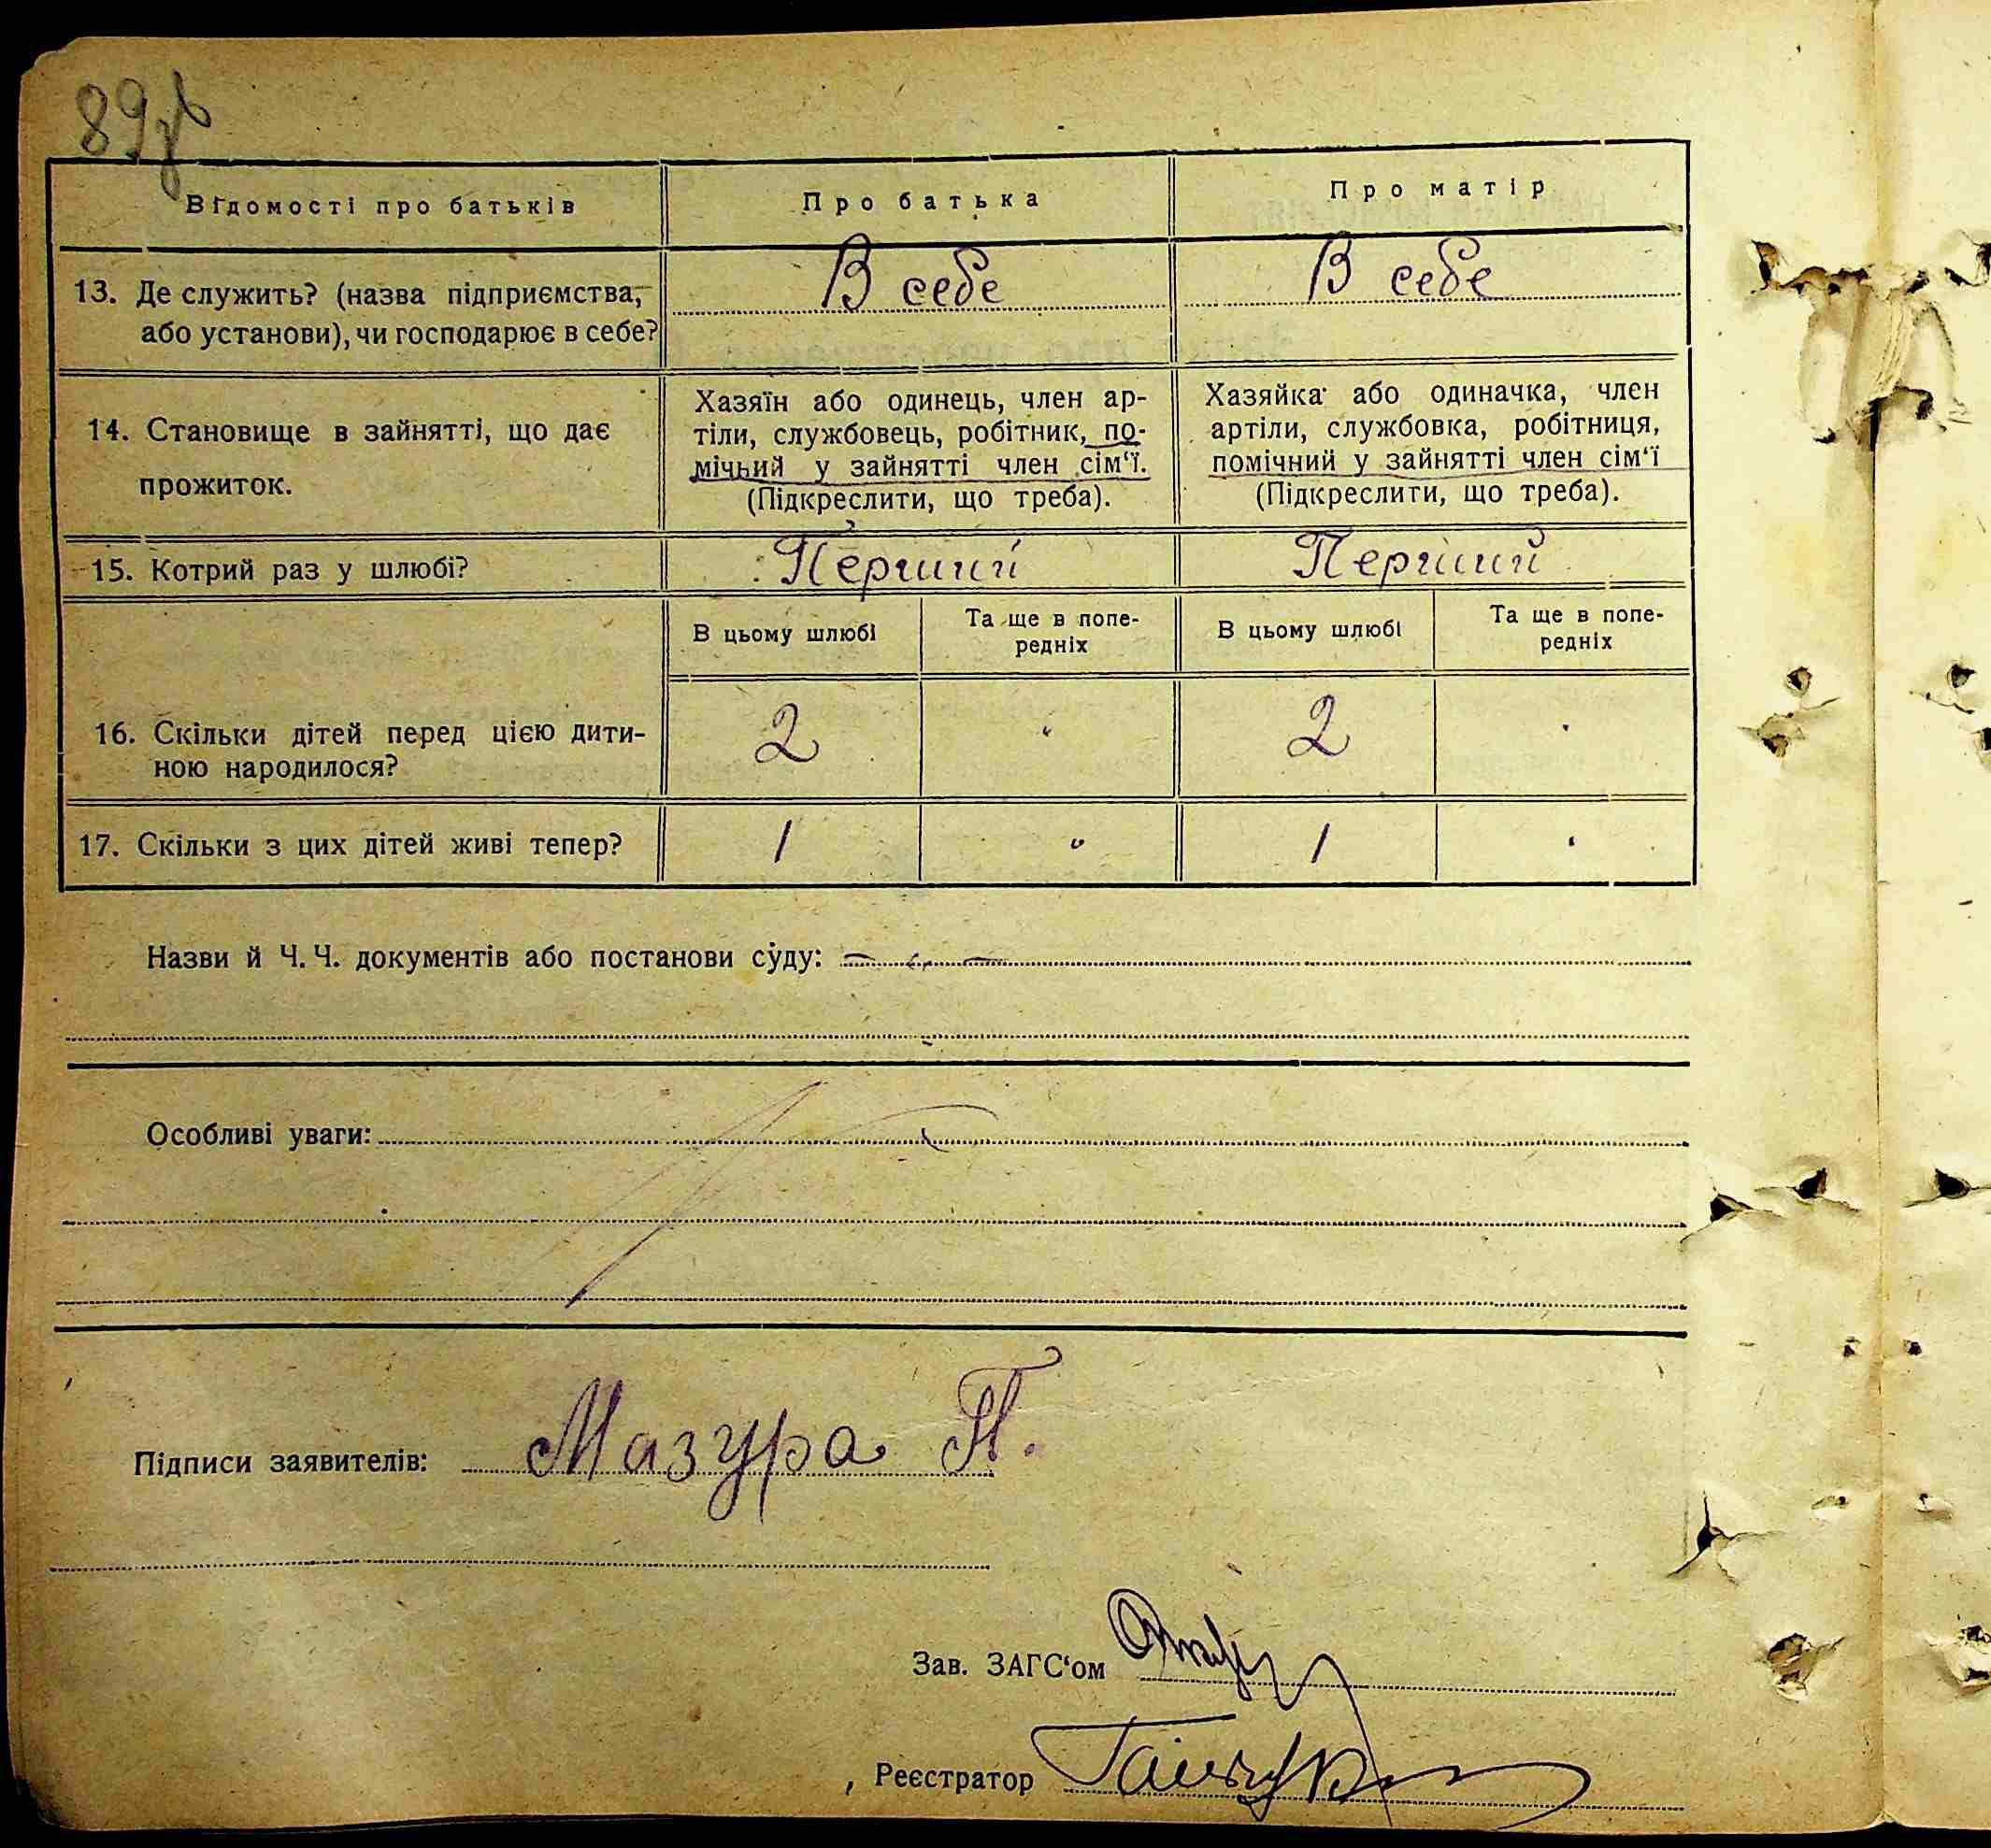 89зв
Відомості про батьків
Про батька
Про матір
13. Де служить? (назва підприємства,
або установи), чи господарює в себе?
В себе
В себе
14. Становище в зайнятті, що дає
прожиток.
Хазяїн або одинець, член ар-
тіли, службовець, робітник, по-
мічний у зайнятті член сім'ї.
(Підкреслити, що треба).
Хазяйка або одиначка, член
артіли, службовка, робітниця,
помічний у зайнятті член сім'ї
(Підкреслити, що треба).
15. Котрий раз у шлюбі?
Перший
Перший
В цьому шлюбі
Та ще в попе-
редніх
В цьому шлюбі
Та ще в попе-
редніх
16. Скільки дітей перед цією дити-
ною народилося?
2
"
2
"
17. Скільки з цих дітей живі тепер?
1
"
1
"
Назви й Ч.Ч. документів або постанови суду: — " —
Особливі уваги:
Підписи заявителів: Мазура П.
Зав. ЗАГС'ом
Реєстратор